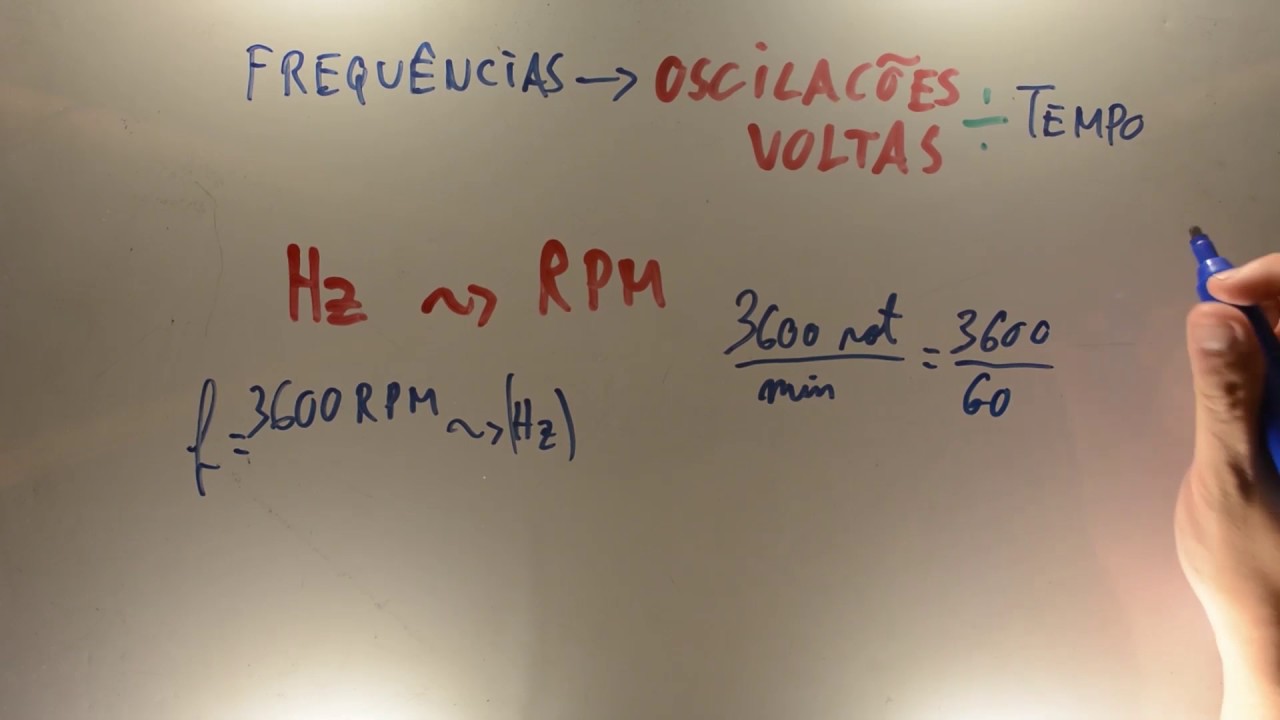 FREQUÊNCIAS → OSCILACÕES ÷ TEMPO
VOLTAS
Hz ⇝ RPM
3600 rot / min = 3600 / 60
f = 3600 RPM ⇝ (Hz)